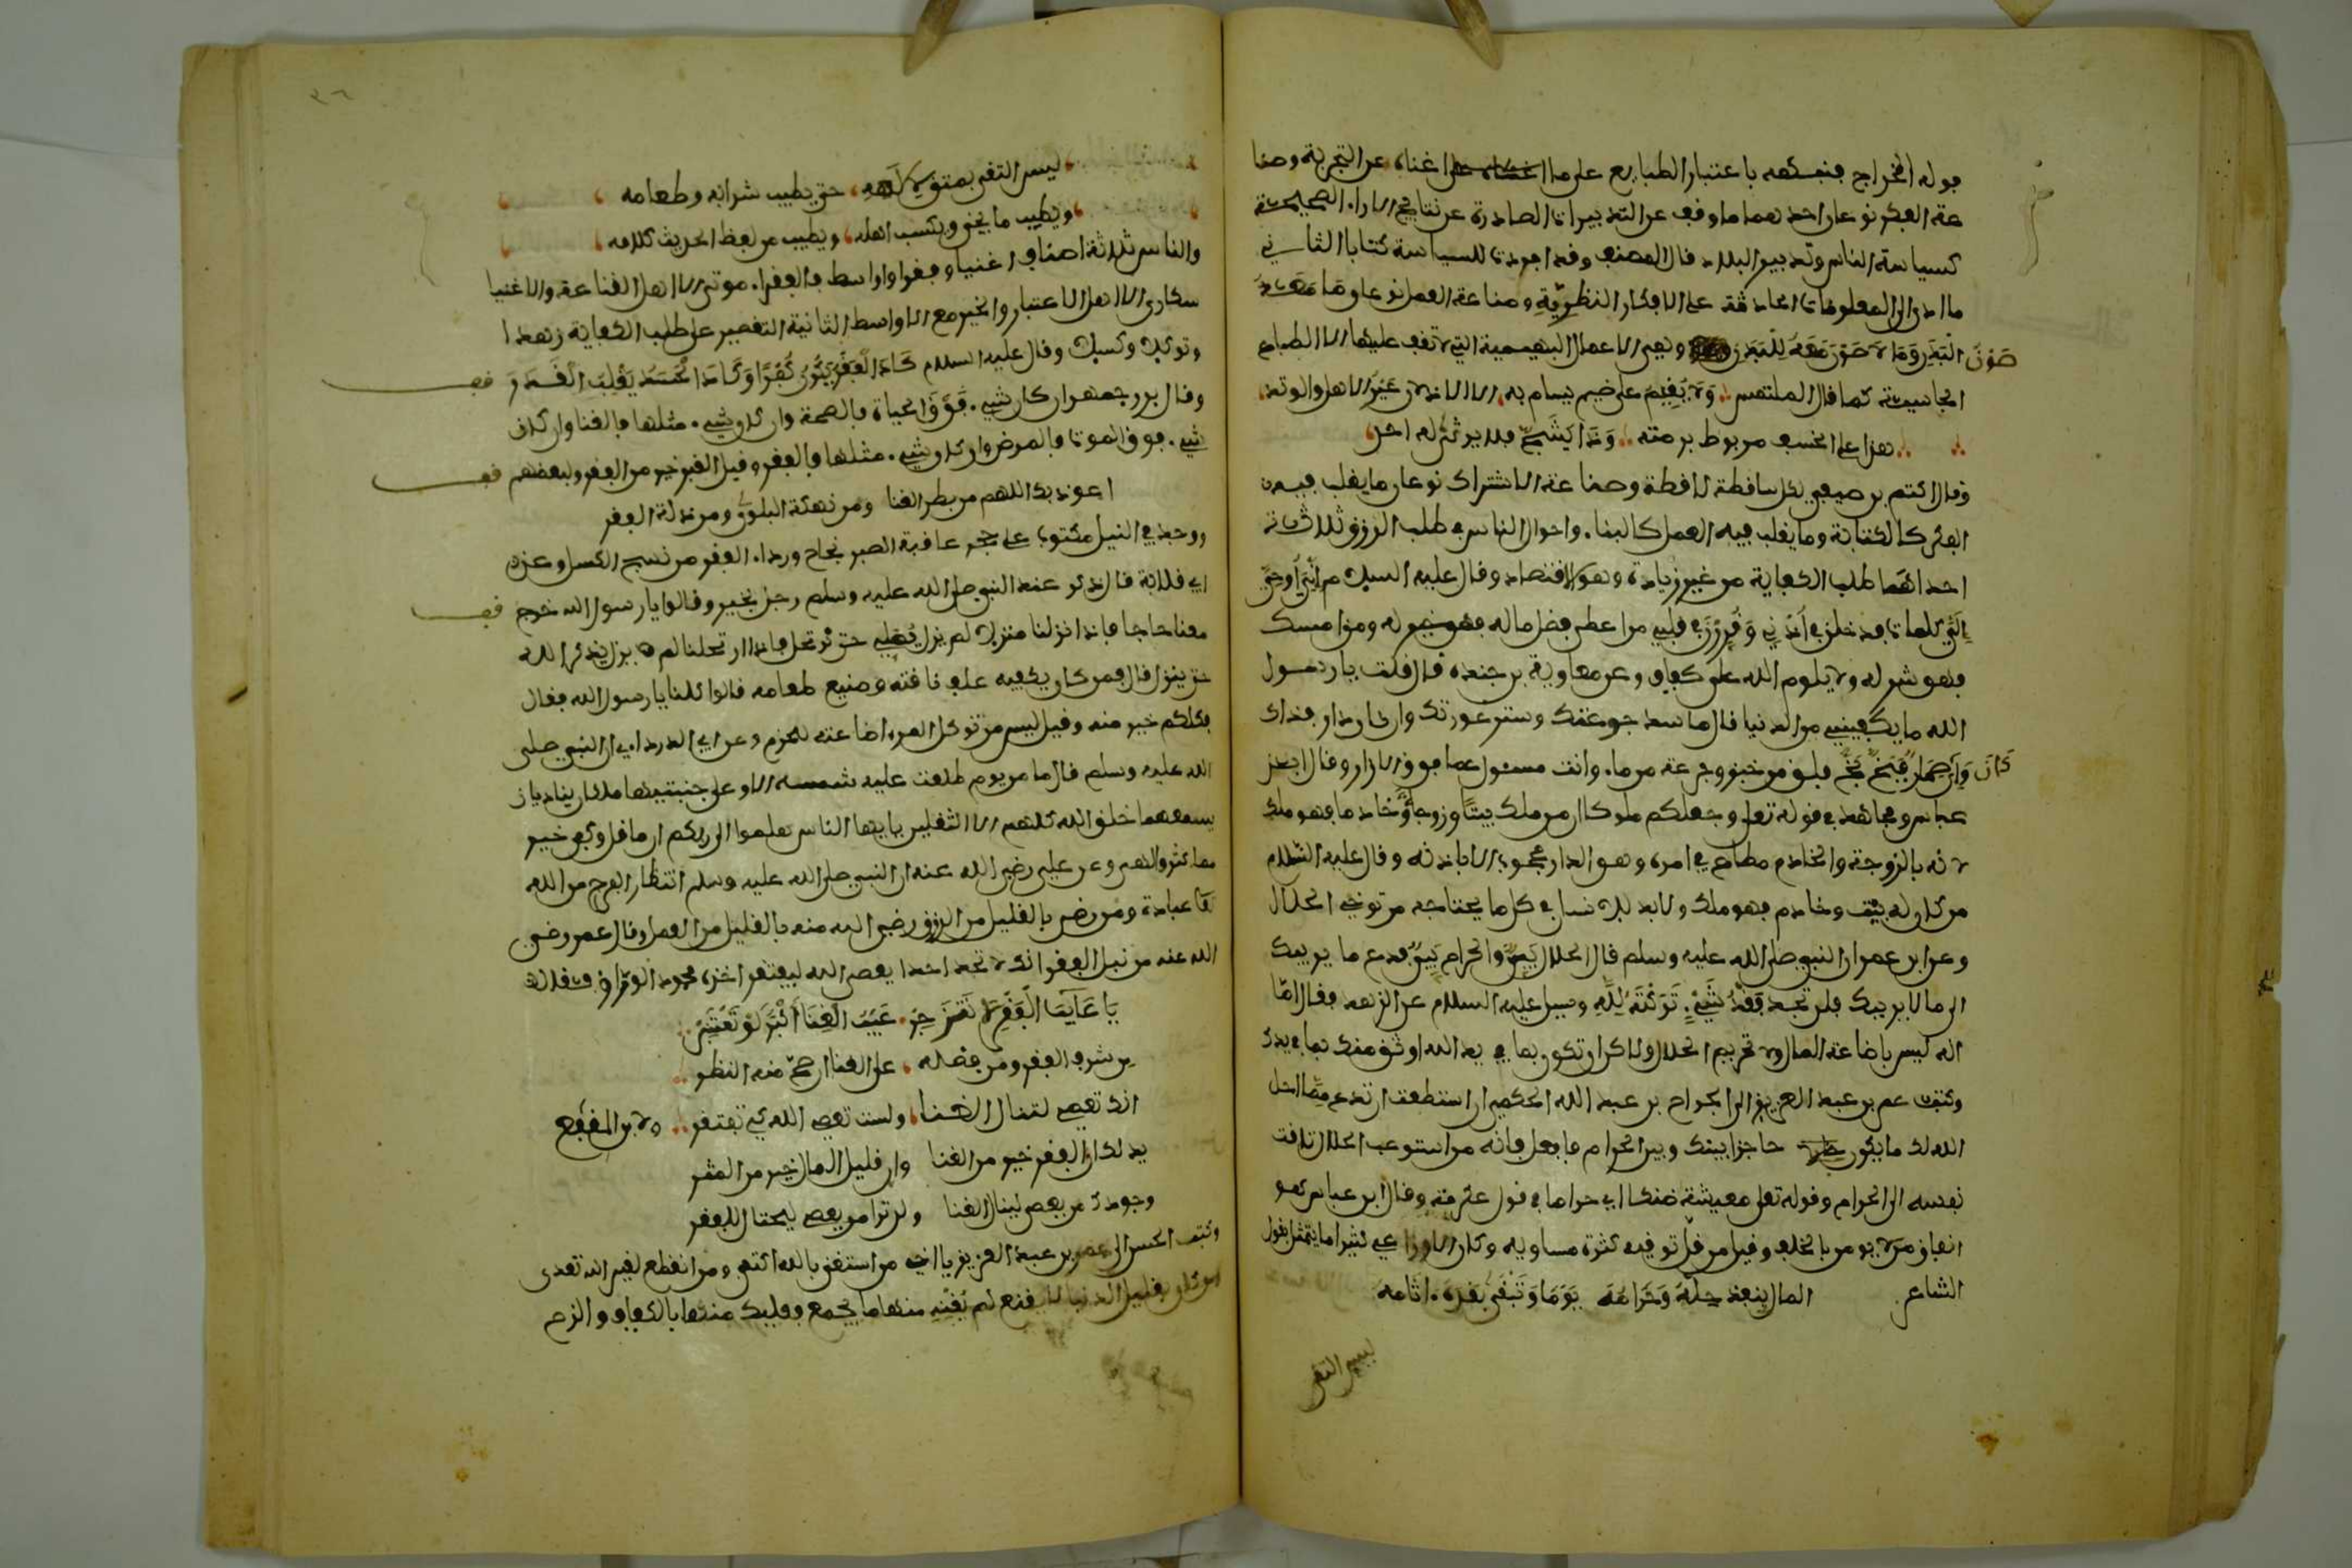 جوله الخراج فتمسكهم باعتبار الطبايع على ما اغناه عن التجربة وصنا
عة الفكر نوعان احدهما ما وقف عن التدبيرات الصادرة عن نتايج الاراء الصحيحة
كسياسة الناس وتدبير البلاد قال المصنف وقد افردت للسياسة كتابا الثاني
ما ادى الى المعلومات الحادثة على الافكار النظرية وصناعة العمل نوعان وقا
وهي الاعمال البهيمية التي تقف عليها الا الطباع
الجاسية كما قال الملتمس ولا يقيم على ضيم يسام به الا الاذلان عير الاهل والوتد
هذا على الخسف مربوط برمته وذا يشج فلا يرثي له احد
وقال اكثم بن صيفي لكل ساقطة لاقطة وصناعة الاشتراك نوعان ما يغلب فيه
الفكر كالكتابة وما يغلب فيه العمل كالبنا واحوال الناس في طلب الرزق ثلاثة
احداهما طلب الكفاية من غير زيادة وهو الاقتصاد وقال عليه السلام اوحي
الي كلمات قد خلن في اذني وقررن في قلبي من اعطى فضل ماله فهو خير له ومن امسك
فهو شر له ولا يلوم الله على كفاف وعن معاوية بن حيدة قال قلت يا رسول
الله ما يكفيني من الدنيا قال ما سد جوعتك وستر عورتك وان كان دار فذاك
وان كان حمار فبخ بخ فلق من خبز وجرعة من ماء وانت مسئول عما فوق الازار وقال ابن
عباس ومجاهد في قوله تعلى وجعلكم ملوكا ان من ملك بيتا وزوجا وخادما فهو ملك
لانه بالزوجة والخادم مطاع في امره وهو الدار محجوب الا باذنه وقال عليه السلام
من كان له بيت وخادم فهو ملك ولا بد للانسان في كل ما يحتاجه من توخي الحلال
وعن ابن عمر ان النبي صلى الله عليه وسلم قال الحلال بين والحرام بين فدع ما يريبك
الى ما لا يريبك فلن تجد فقد شيء تركته لله وسيل عليه السلام عن الزهد فقال اما
انه ليس باضاعة المال ولا تحريم الحلال ولاكن ان تكون بما في يد الله اوثق منك بما في يدك
وكتب عمر بن عبد العزيز الى الجراح بن عبد الله الحكمي ان استطعت ان تدع مما احل
الله لك ما يكون حاجزا بينك وبين الحرام فافعل فانه من استوعب الحلال تاقت
نفسه الى الحرام وقوله تعلى معيشة ضنكا اي حراما في قول عكرمة وقال ابن عباس هو
انفاق من لا يومن بالخلف وقيل من قل توقيه كثرة مساويه وكان الاوزاعي كثيرا ما يتمثل بقول
الشاعر المال ينفد حله وحرامه يوما وتبقى بعده اثامه
ليس التقي
ليس التقي بمتق لالهه حتى يطيب شرابه وطعامه
ويطيب ما يحوي ويكسب اهله ويطيب من لفظ الحديث كلامه
والناس ثلاثة اصناف اغنياء وفقرا واواسط فالفقراء موتى الا اهل القناعة والاغنيا
سكارى الا اهل الاعتبار والخير مع الاواسط الثانية التقصير على طلب الكفاية زهدا
وتوكلا وكسلا وقال عليه السلام كاد الفقر يكون كفرا وكاد الحسد يغلب القدر
وقال بزرجمهر ان كان شيء فوق الحياة فالصحة وان كان شيء مثلها فالغنا وان كان
شيء فوق الموت فالمرض وان كان شيء مثلها فالفقر وقيل القبر خير من الفقر ولبعضهم
اعوذ بك اللهم من بطر الغنا ومن نهكة البلوى ومن ذلة الفقر
ووجد في النيل مكتوب على حجر عاقبة الصبر نجاح ورداء الفقر من نسج الكسل وعن
ابي قلابة قال ذكر عند النبي صلى الله عليه وسلم رجل بخير وقالوا يا رسول الله خرج
معنا حاجا فاذا نزلنا منزلا لم يزل يصلي حتى نرتحل فاذا ارتحلنا لم يزل يذكر الله
حتى ينزل قال فمن كان يكفيه علف ناقته وصنيع طعامه قالوا كلنا يا رسول الله فقال
فكلكم خير منه وقيل ليس من توكل المرء اضاعته للحزم وعن ابي الدرداء ان النبي صلى
الله عليه وسلم قال ما من يوم طلعت عليه شمسه الا وعلى جنبتيها ملكان يناديان
يسمعهما خلق الله كلهم الا الثقلين يا يها الناس هلموا الى ربكم ان ما قل وكفى خير
مما كثر والهى وعن علي رضي الله عنه ان النبي صلى الله عليه وسلم انتظار الفرج من الله
عبادة ومن رضي بالقليل من الرزق رضي الله منه بالقليل من العمل وقال عمر رضي
الله عنه من نبل الفقر انك لا تجد احدا يعصي الله ليفتقر اخذه محمود الوراق فقال
يا عايب الفقر الا تزدجر عيب الغنا اكبر لو تعتبر
من شرف الفقر ومن فضله على الغنا ان صح منه النظر
انك تعصي لتنال الغنا ولست تعصي الله كي تفتقر ولابن المقفع
يدلك ان الفقر خير من الغنا وان قليل المال خير من المثر
وجودك من يعصي لينال الغنا ولن ترا من يعصي ليحتال للفقر
وكتب الحسن الى عمر بن عبد العزيز يا اخي من استغنى بالله اكتفى ومن انقطع لغير الله تعدى
من كان بقليل الدنيا لا يقنع لم يغنه منها ما يجمع فعليك منها بالكفاف والزم